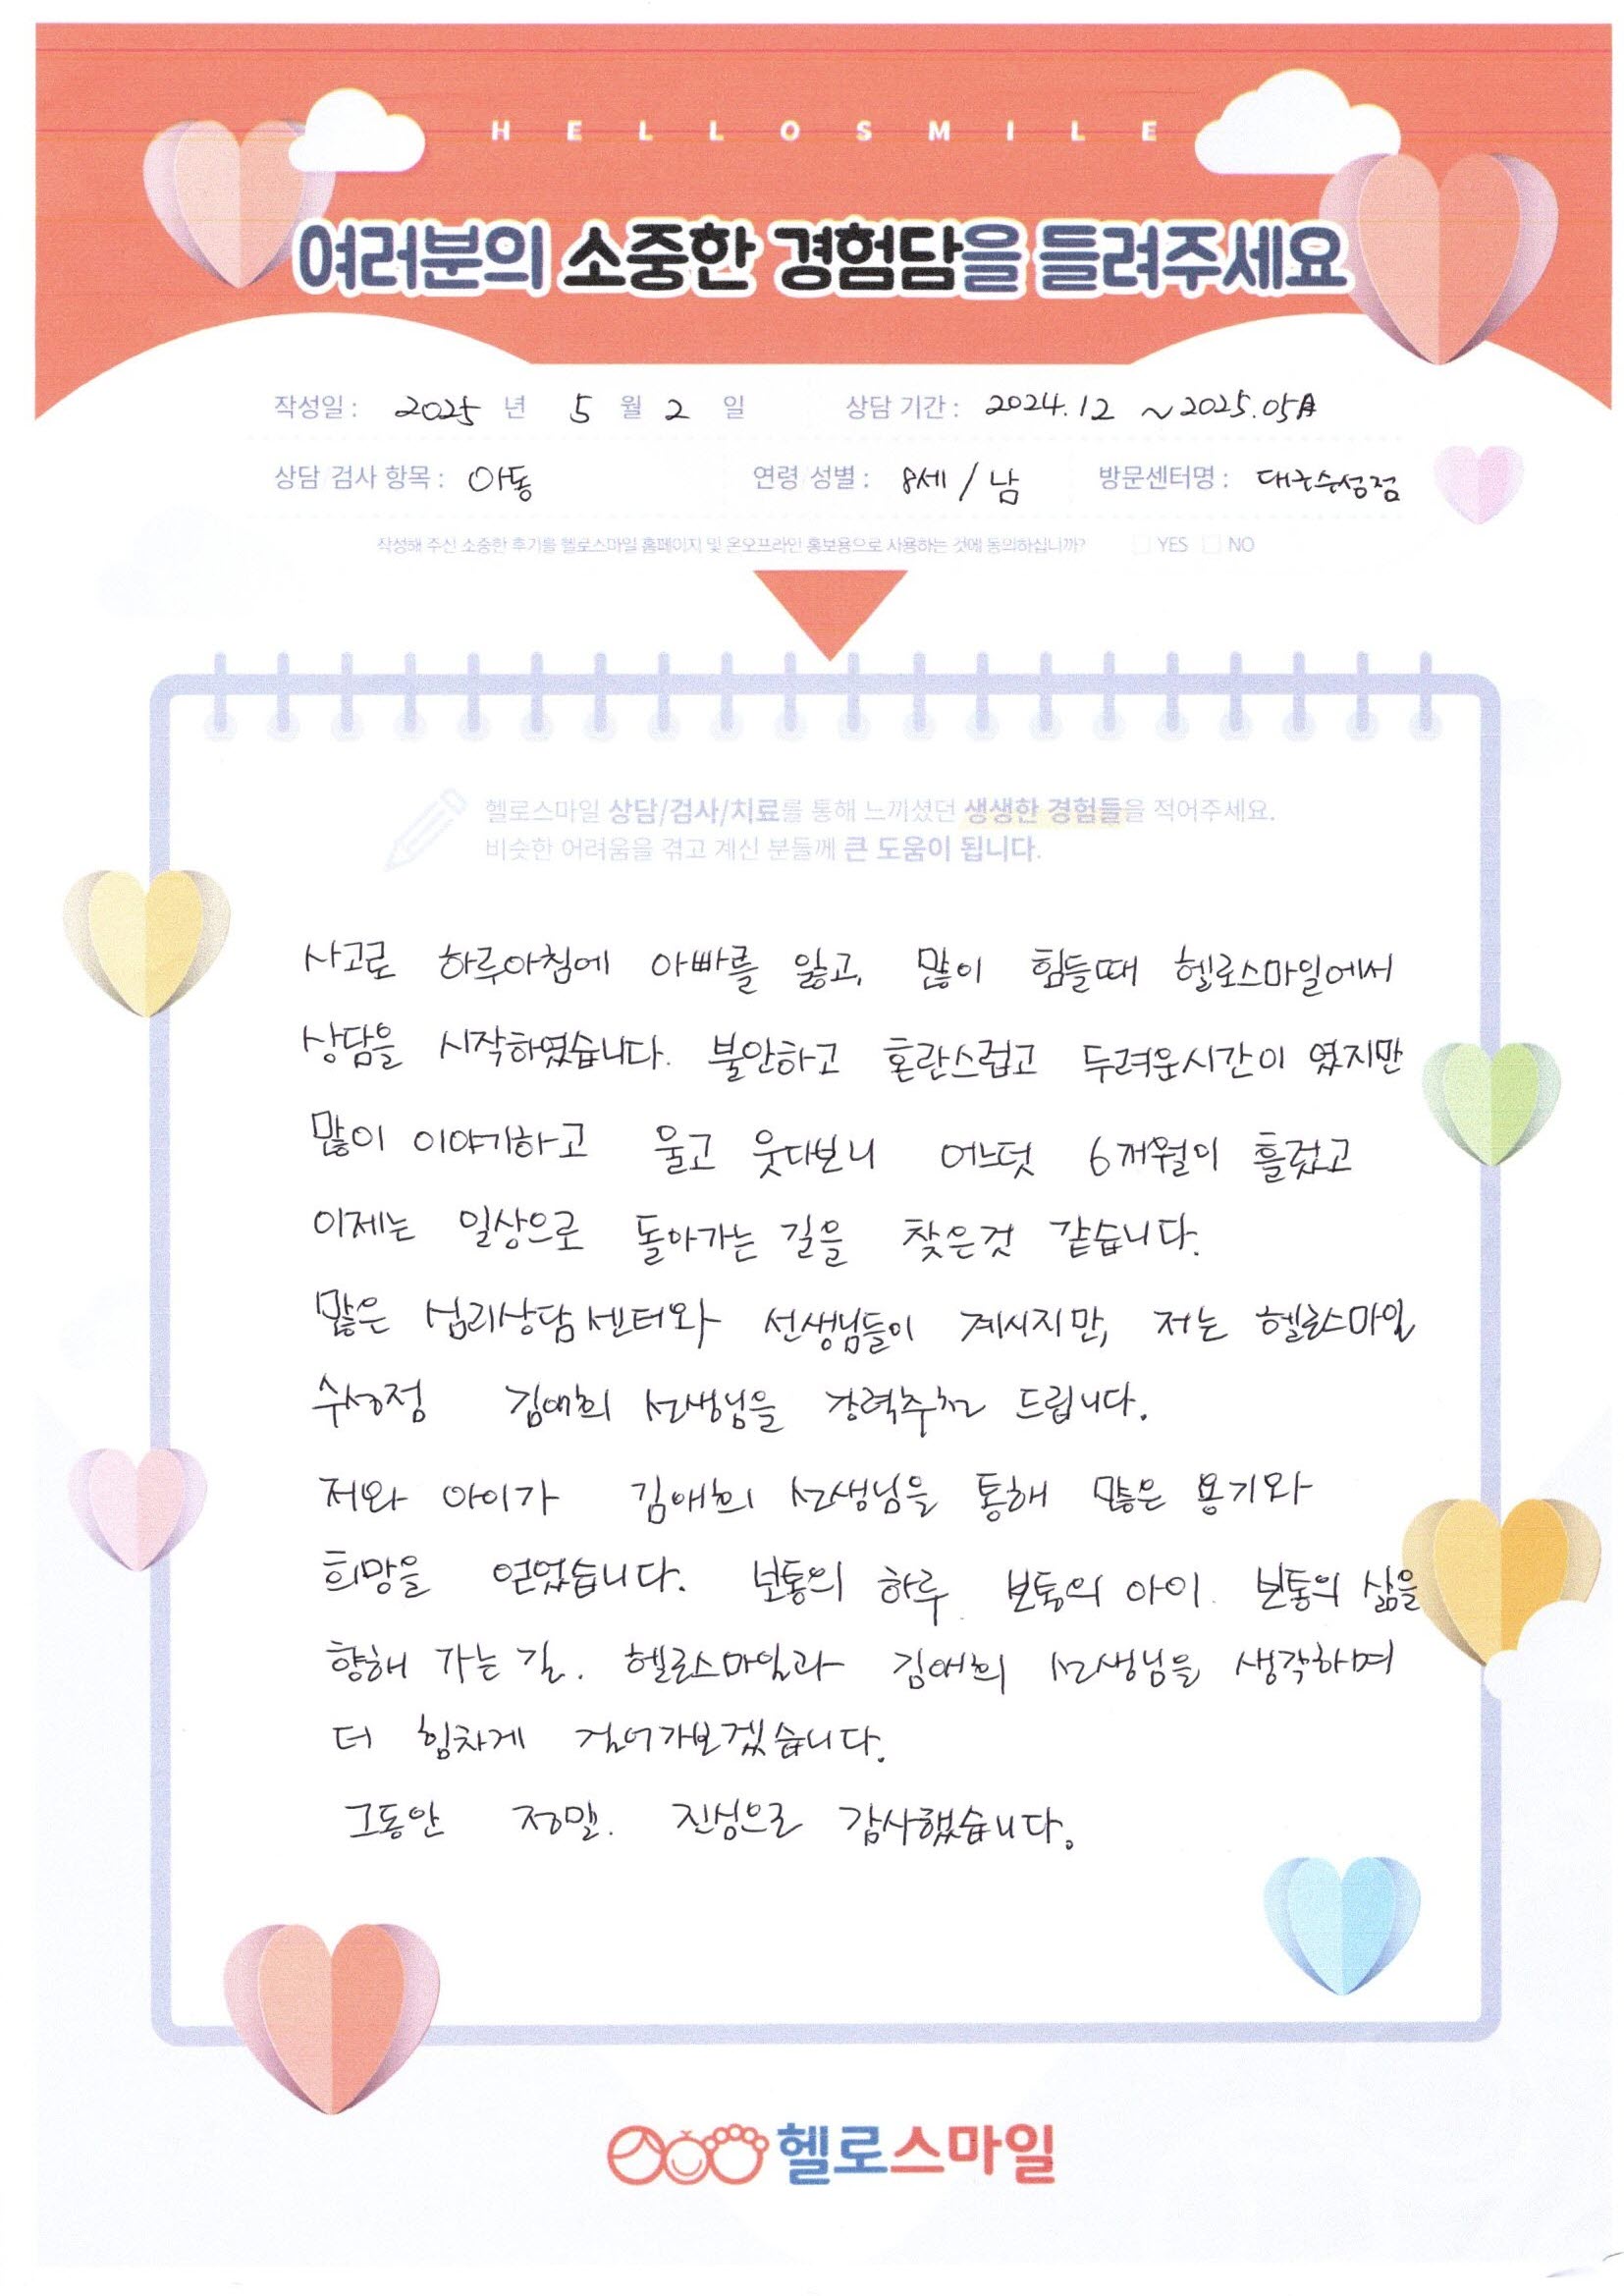 HELLOSMILE
여러분의 소중한 경험담을 들려주세요
작성일 : 2025 년 5 월 2 일 상담 기간 : 2024.12 ~2025.05月
상담 검사 항목 : 아동 연령 성별 : 8세 / 남 방문센터명 : 대구수성점
작성해 주신 소중한 후기를 헬로스마일 홈페이지 및 온오프라인 홍보용으로 사용하는 것에 동의하십니까? YES NO
헬로스마일 상담/검사/치료를 통해 느끼셨던 생생한 경험들을 적어주세요.
비슷한 어려움을 겪고 계신 분들께 큰 도움이 됩니다.
사고로 하루아침에 아빠를 잃고, 많이 힘들때 헬로스마일에서
상담을 시작하였습니다. 불안하고 혼란스럽고 두려운시간이 였지만
많이 이야기하고 울고 웃다보니 어느덧 6개월이 흘렀고
이제는 일상으로 돌아가는 길을 찾은것 같습니다.
많은 심리상담센터와 선생님들이 계시지만, 저는 헬로스마일
수성점 김애희 선생님을 강력추천 드립니다.
저와 아이가 김애희 선생님을 통해 많은 용기와
희망을 얻었습니다. 보통의 하루. 보통의 아이. 보통의 삶을
향해 가는 길. 헬로스마일과 김애희 선생님을 생각하며
더 힘차게 걸어가보겠습니다.
그동안 정말. 진심으로 감사했습니다.
헬로스마일